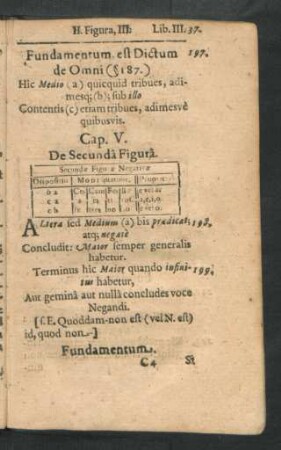 II. Figura, III. Lib. III. 37.
Fundamentum. est Dictum 197.
de Omni (§ 187.)
Hîc Medio (a) quicquid tribues, adi-
metq; (b); sub illo
Contentis (c) etiam tribues, adimesvè
quibusvis.
Cap. V.
De Secundâ Figurâ.
Secundæ Figuræ Negativæ
Dispositio
b a
c a
c b
Altera sed Medium (a) bis prædicat, 198.
atq; negatè
Concludit: Maior semper generalis
habetur.
Terminus hic Maior quando infini- 199.
tus habetur,
Aut geminâ aut nullâ concludes voce
Negandi.
[f. E. Quoddam-non est (vel N. est)
id, quod non--]
Fundamentum.
C4 St